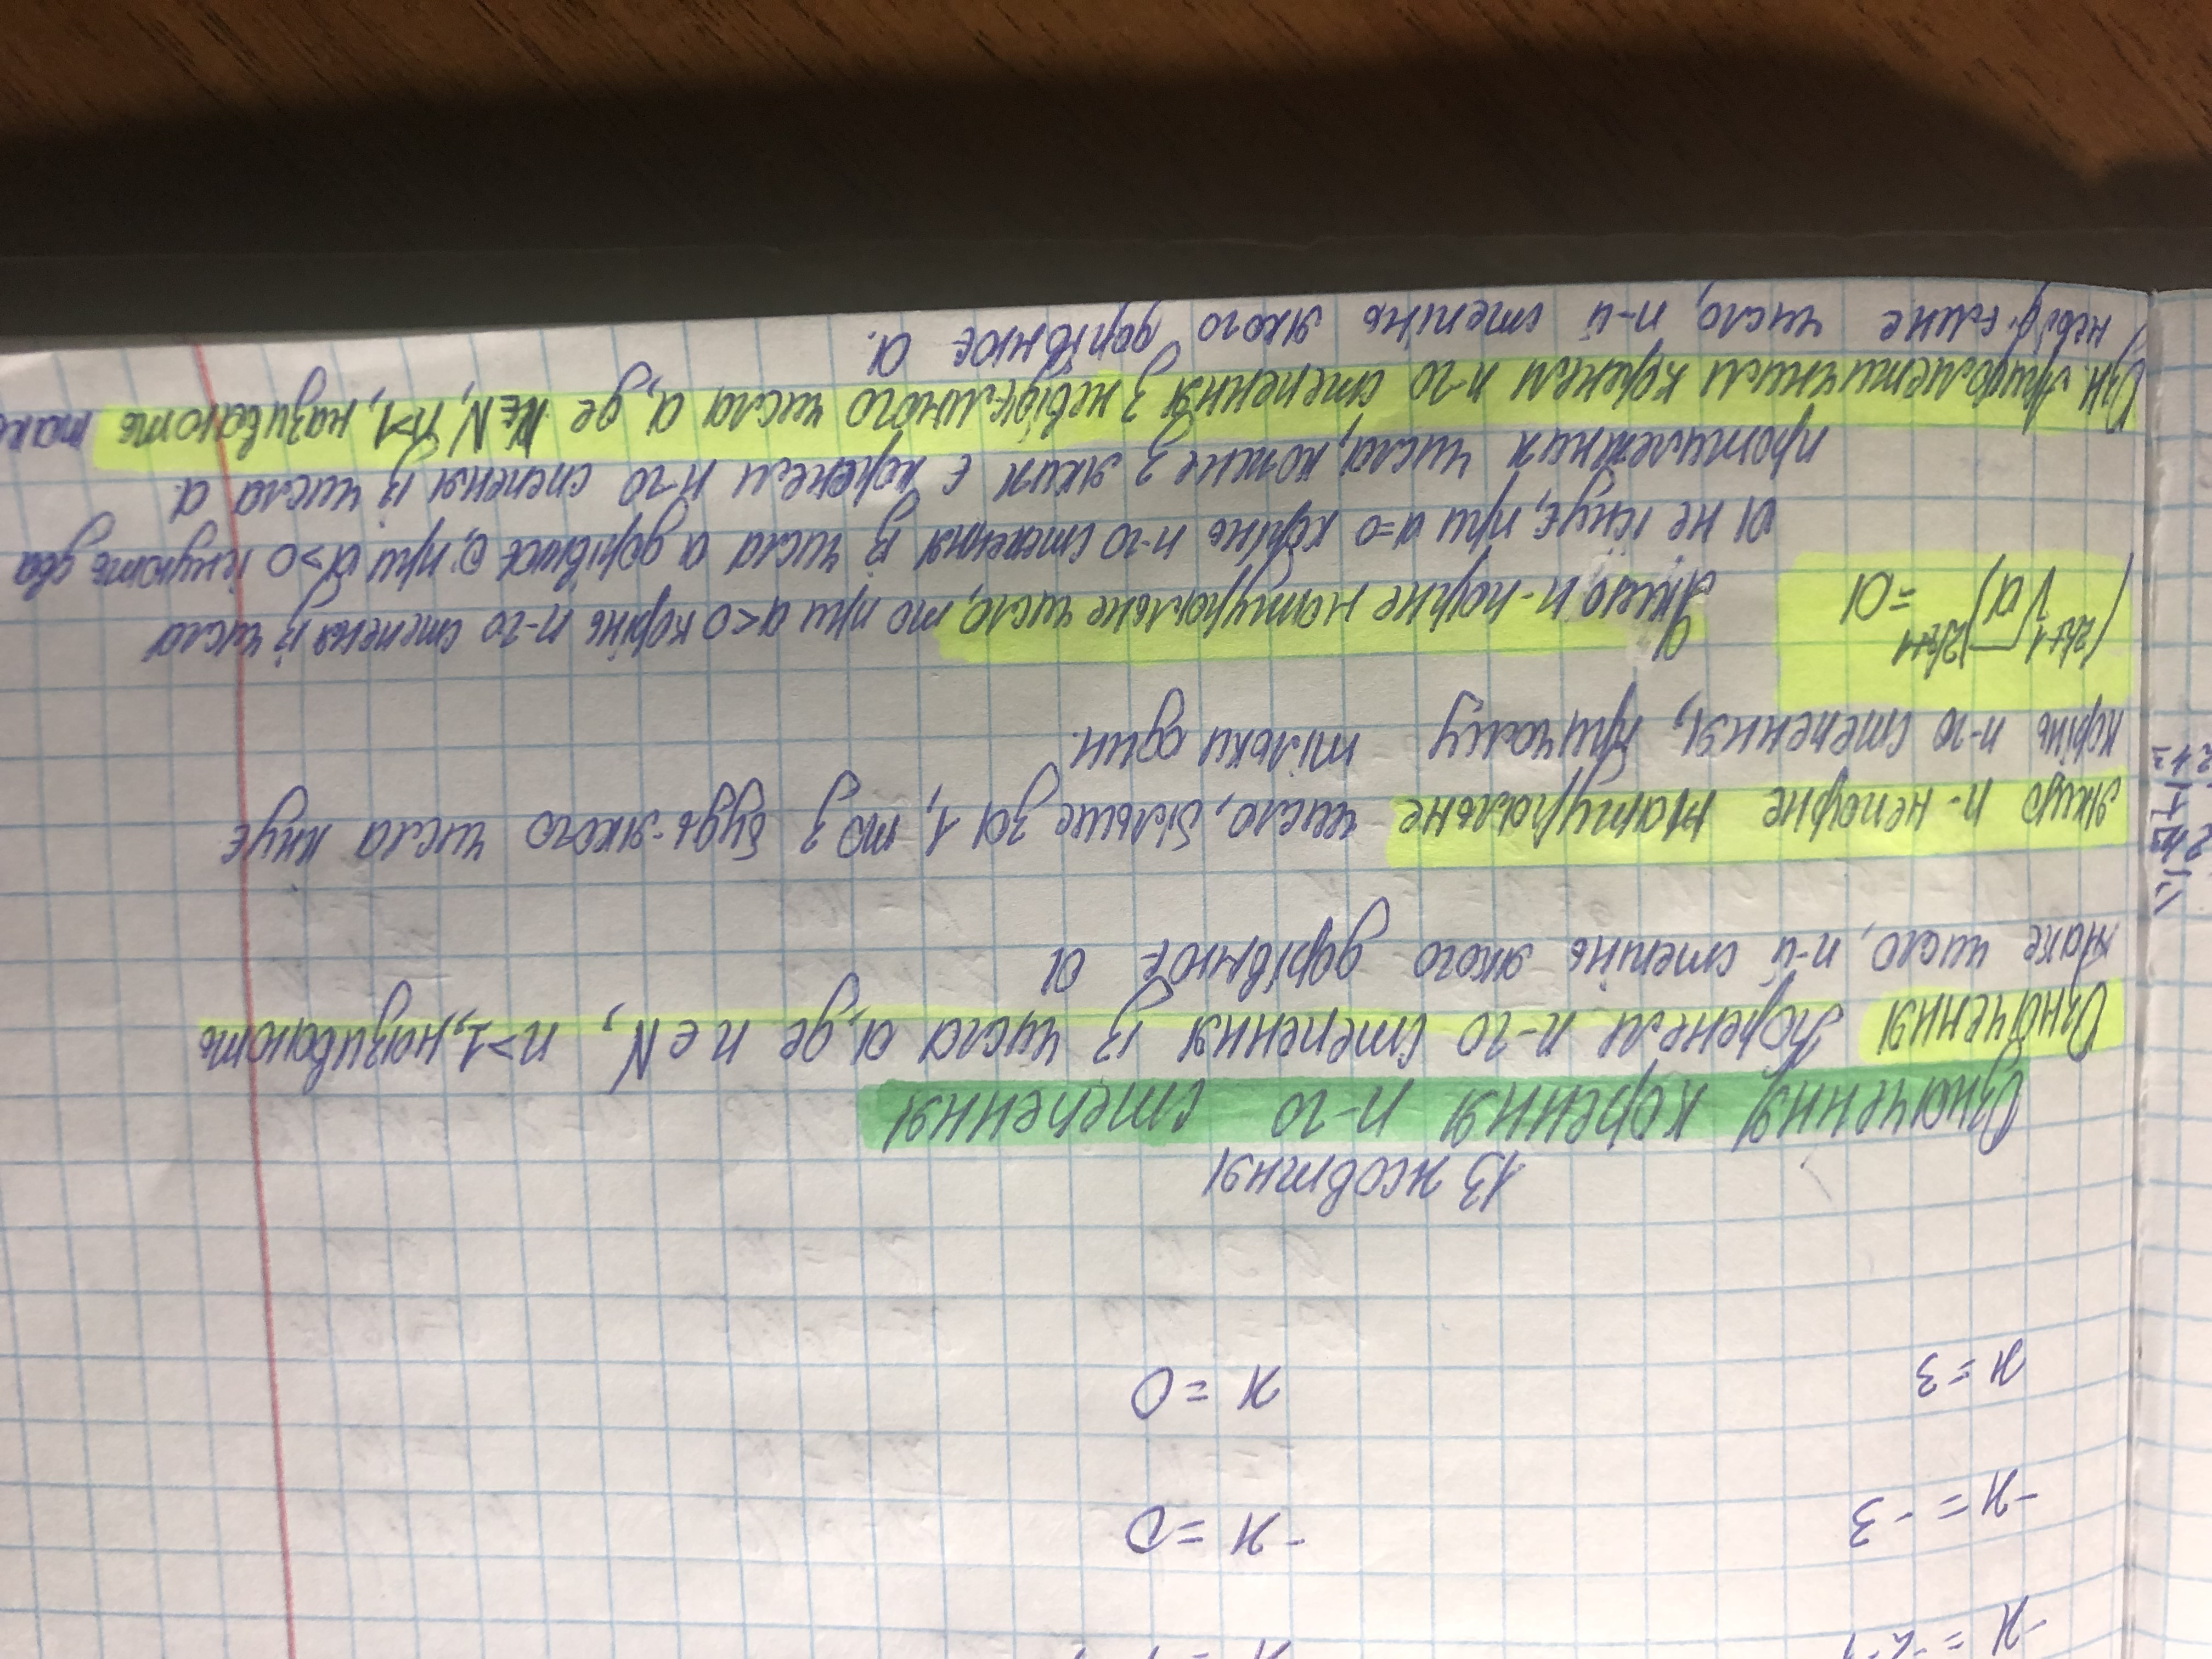 -x = -3
-x = 0
x = 3
x = 0
13 жовтня
Означення кореня n-го степення
Означення Коренем n-го степення із числа a, де n ∈ N, n>1, називають
таке число, n-й степінь якого дорівнює a
якщо n- непарне натуральне число, більше за 1, то з будь-якого числа існує
корінь n-го степення, причому тільки один.
(²ᵏ⁺¹√a)²ᵏ⁺¹ = a
Якщо n-парне натуральне число, то при a<0 корінь n-го степеня із числа
a не існує, при a=0 корінь n-го степення із числа a дорівнює 0, при a>0 існують два
протилежних числа, кожне з яких є коренем n-го степеня із числа a
Озн. Арифметичним коренем n-го степення з невід'ємного числа a, де N∈N, n>1, називають таке
невід'ємне число, n-й степінь якого дорівнює a.